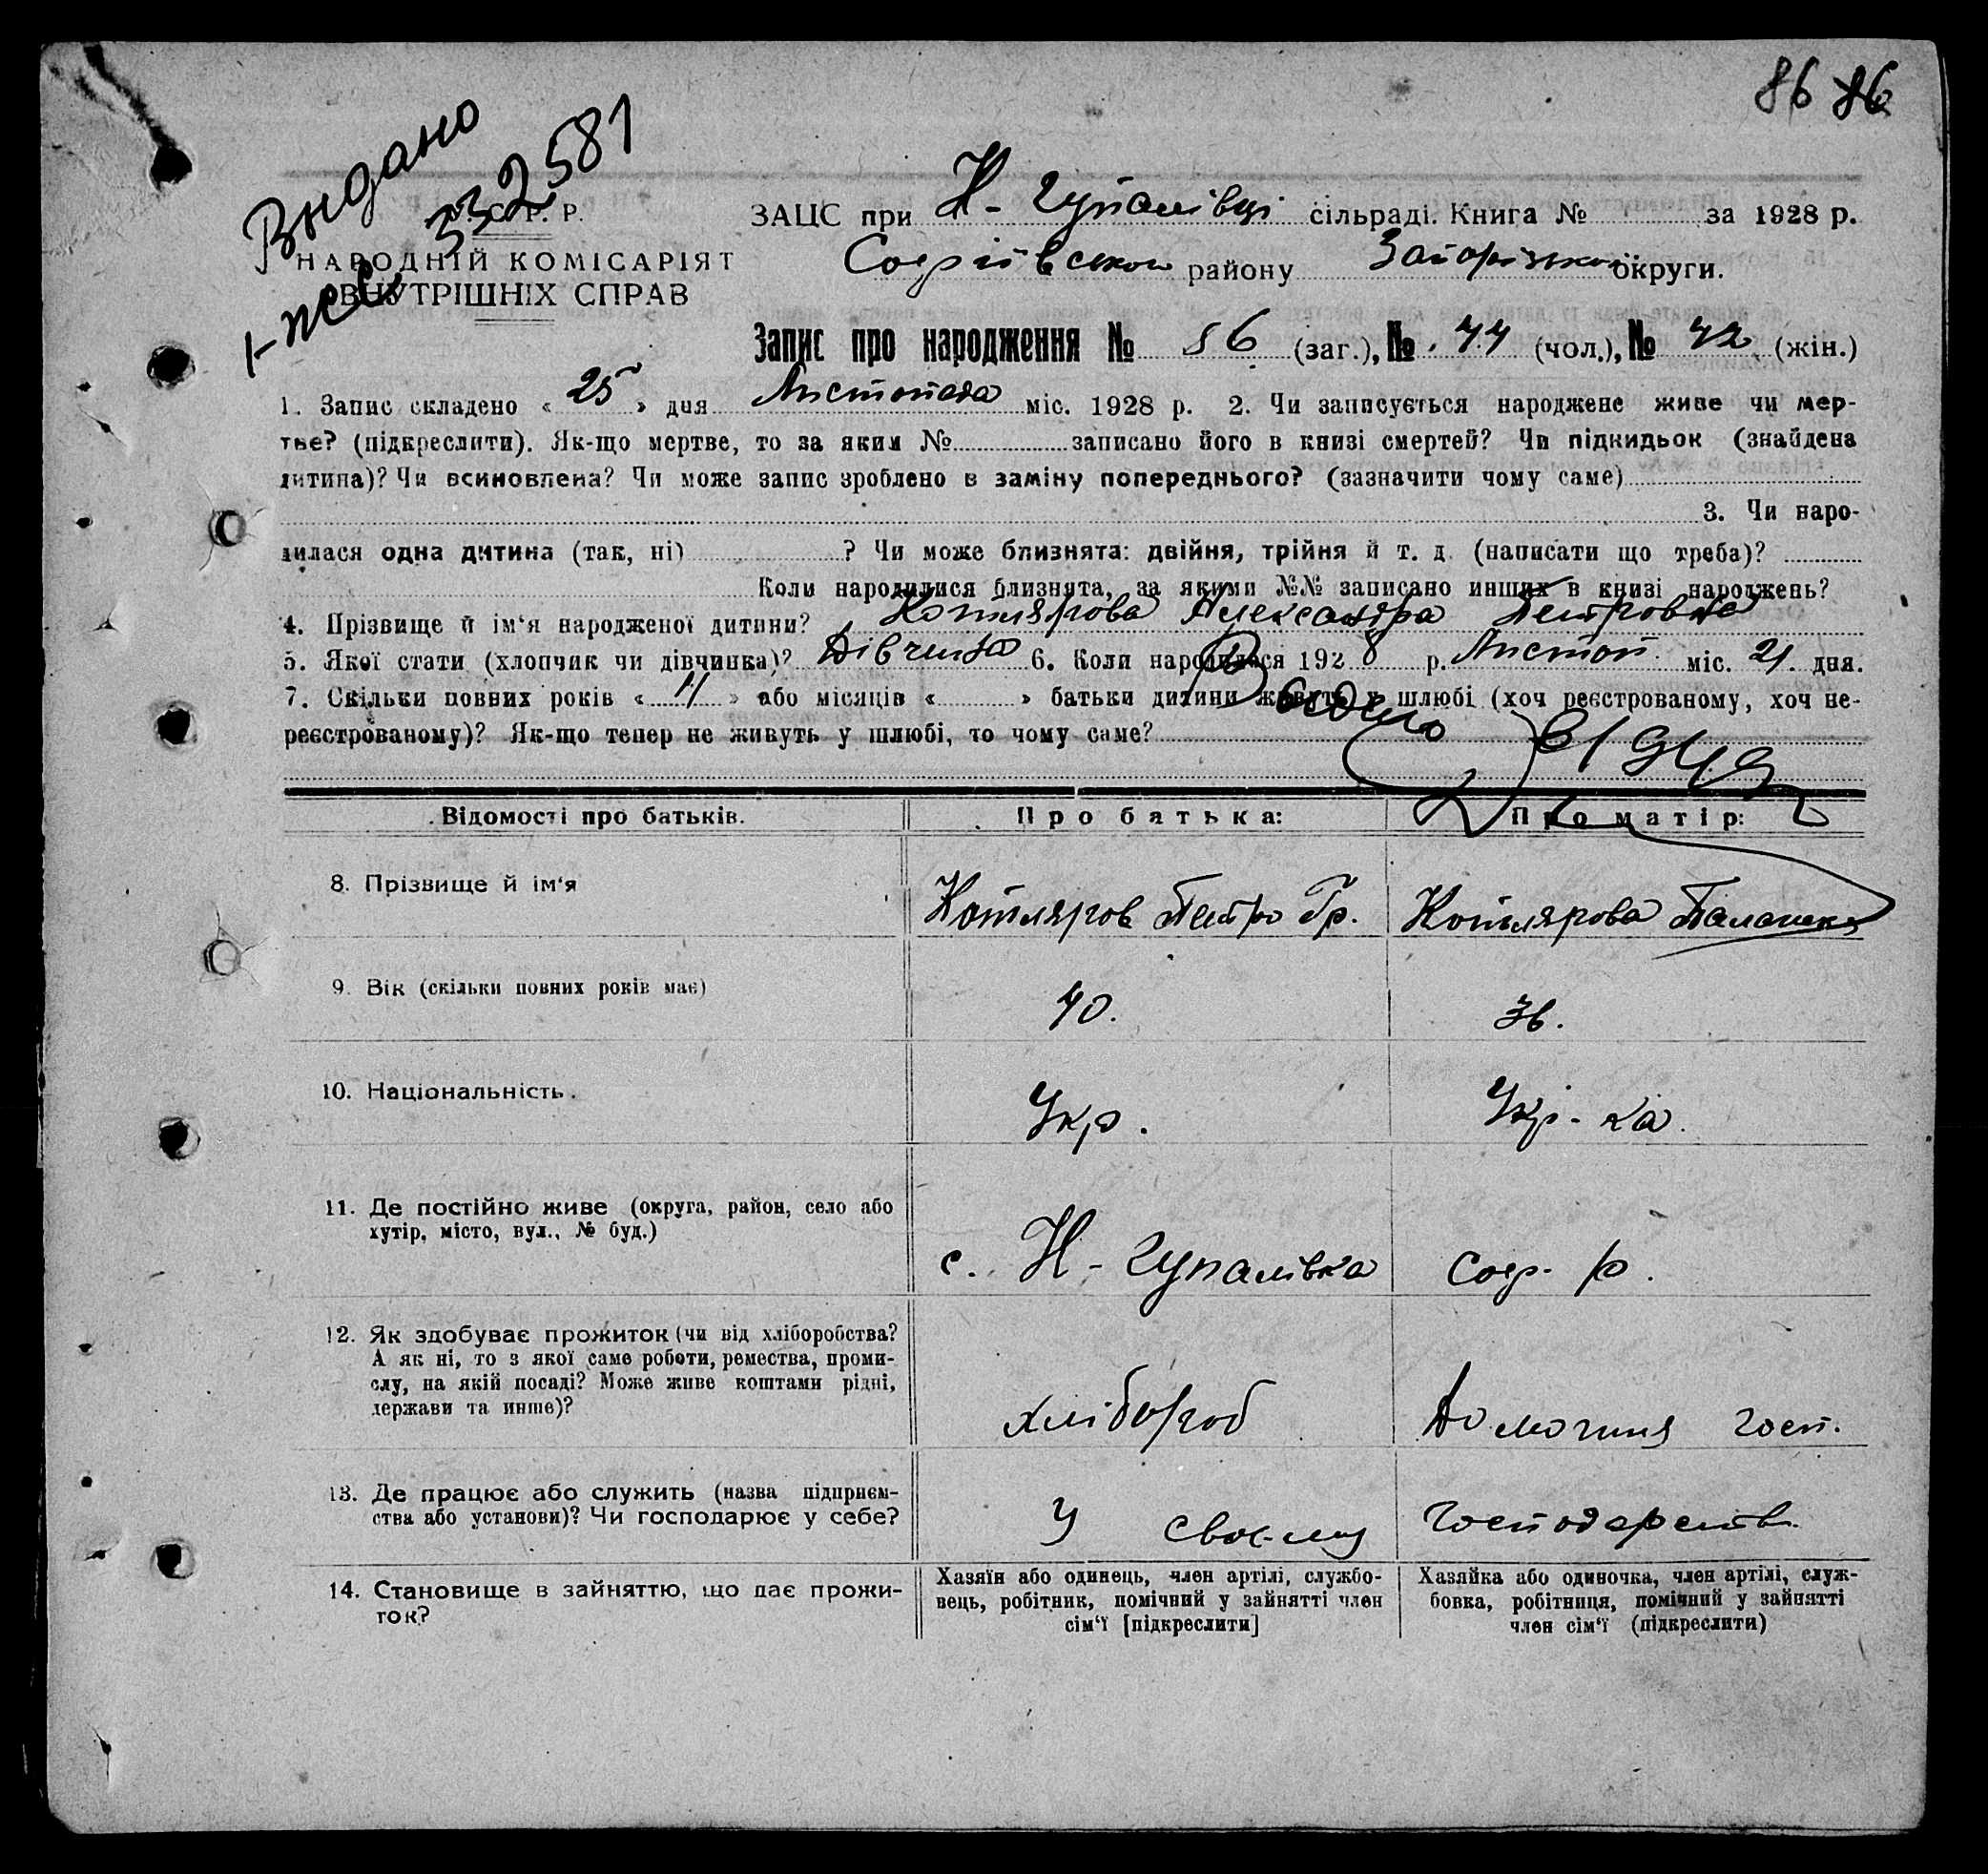 86 86
Видано
332581
У. С. Р. Р.
НАРОДНІЙ КОМІСАРІЯТ
ВНУТРІШНІХ СПРАВ
ЗАЦС при Н-Гупалівці сільраді. Книга № за 1928 р.
Софіївськом району Запоріжської округи.
Запис про народження № 86 (заг.), № 44 (чол.), № 42 (жін.)
1. Запис складено « 25 » дня Листопада міс. 1928 р. 2. Чи записується народжене живе чи мер-
тве? (підкреслити). Як-що мертве, то за яким № записано його в книзі смертей? Чи підкидьок (знайдена
дитина)? Чи всиновлена? Чи може запис зроблено в заміну попереднього? (зазначити чому саме)
3. Чи наро-
дилася одна дитина (так, ні) ? Чи може близнята: двійня, трійня й т. д. (написати що треба)?
Коли народилися близнята, за якими №№ записано инших в книзі народжень?
4. Прізвище й ім‘я народженої дитини? Котлярова Александра Петровна
5. Якої стати (хлопчик чи дівчинка)? Дівчина 6. Коли народилася 1928 р. Листоп. міс. 21. дня.
7. Скільки повних років « 11 » або місяців « » батьки дитини живуть у шлюбі (хоч реєстрованому, хоч не-
реєстрованому)? Як-що тепер не живуть у шлюбі, то чому саме?
Відомості про батьків. Про батька: Про матір:
8. Прізвище й ім‘я Котляров Петро Гр. Котлярова Палажка
9. Вік (скільки повних років має) 40. 36.
10. Національність. Укр. Укр-ка.
11. Де постійно живе (округа, район, село або
хутір, місто, вул., № буд.)
с. Н-Гупалівка Соф. р.
12. Як здобуває прожиток (чи від хліборобства?
А як ні, то з якої саме роботи, ремества, проми-
слу, на якій посаді? Може живе коштами рідні,
держави та инше)?
хлібороб Домогиня госп.
13. Де працює або служить (назва підприєм-
ства або установи)? Чи господарює у себе?
У своєму господарстві.
14. Становище в зайняттю, що дає прожи-
ток?
Хазяїн або одинець, член артілі, службо-
вець, робітник, помічний у зайнятті член
сім‘ї [підкреслити]
Хазяйка або одиночка, член артілі, служ-
бовка, робітниця, помічний у зайнятті
член сім‘ї (підкреслити)